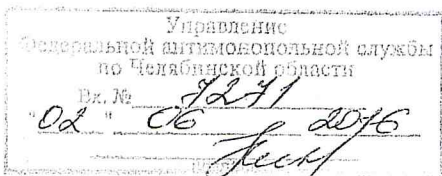 Управление
Федеральной антимонопольной службы
по Челябинской области
Вх. № 7271
"02" 06 2016